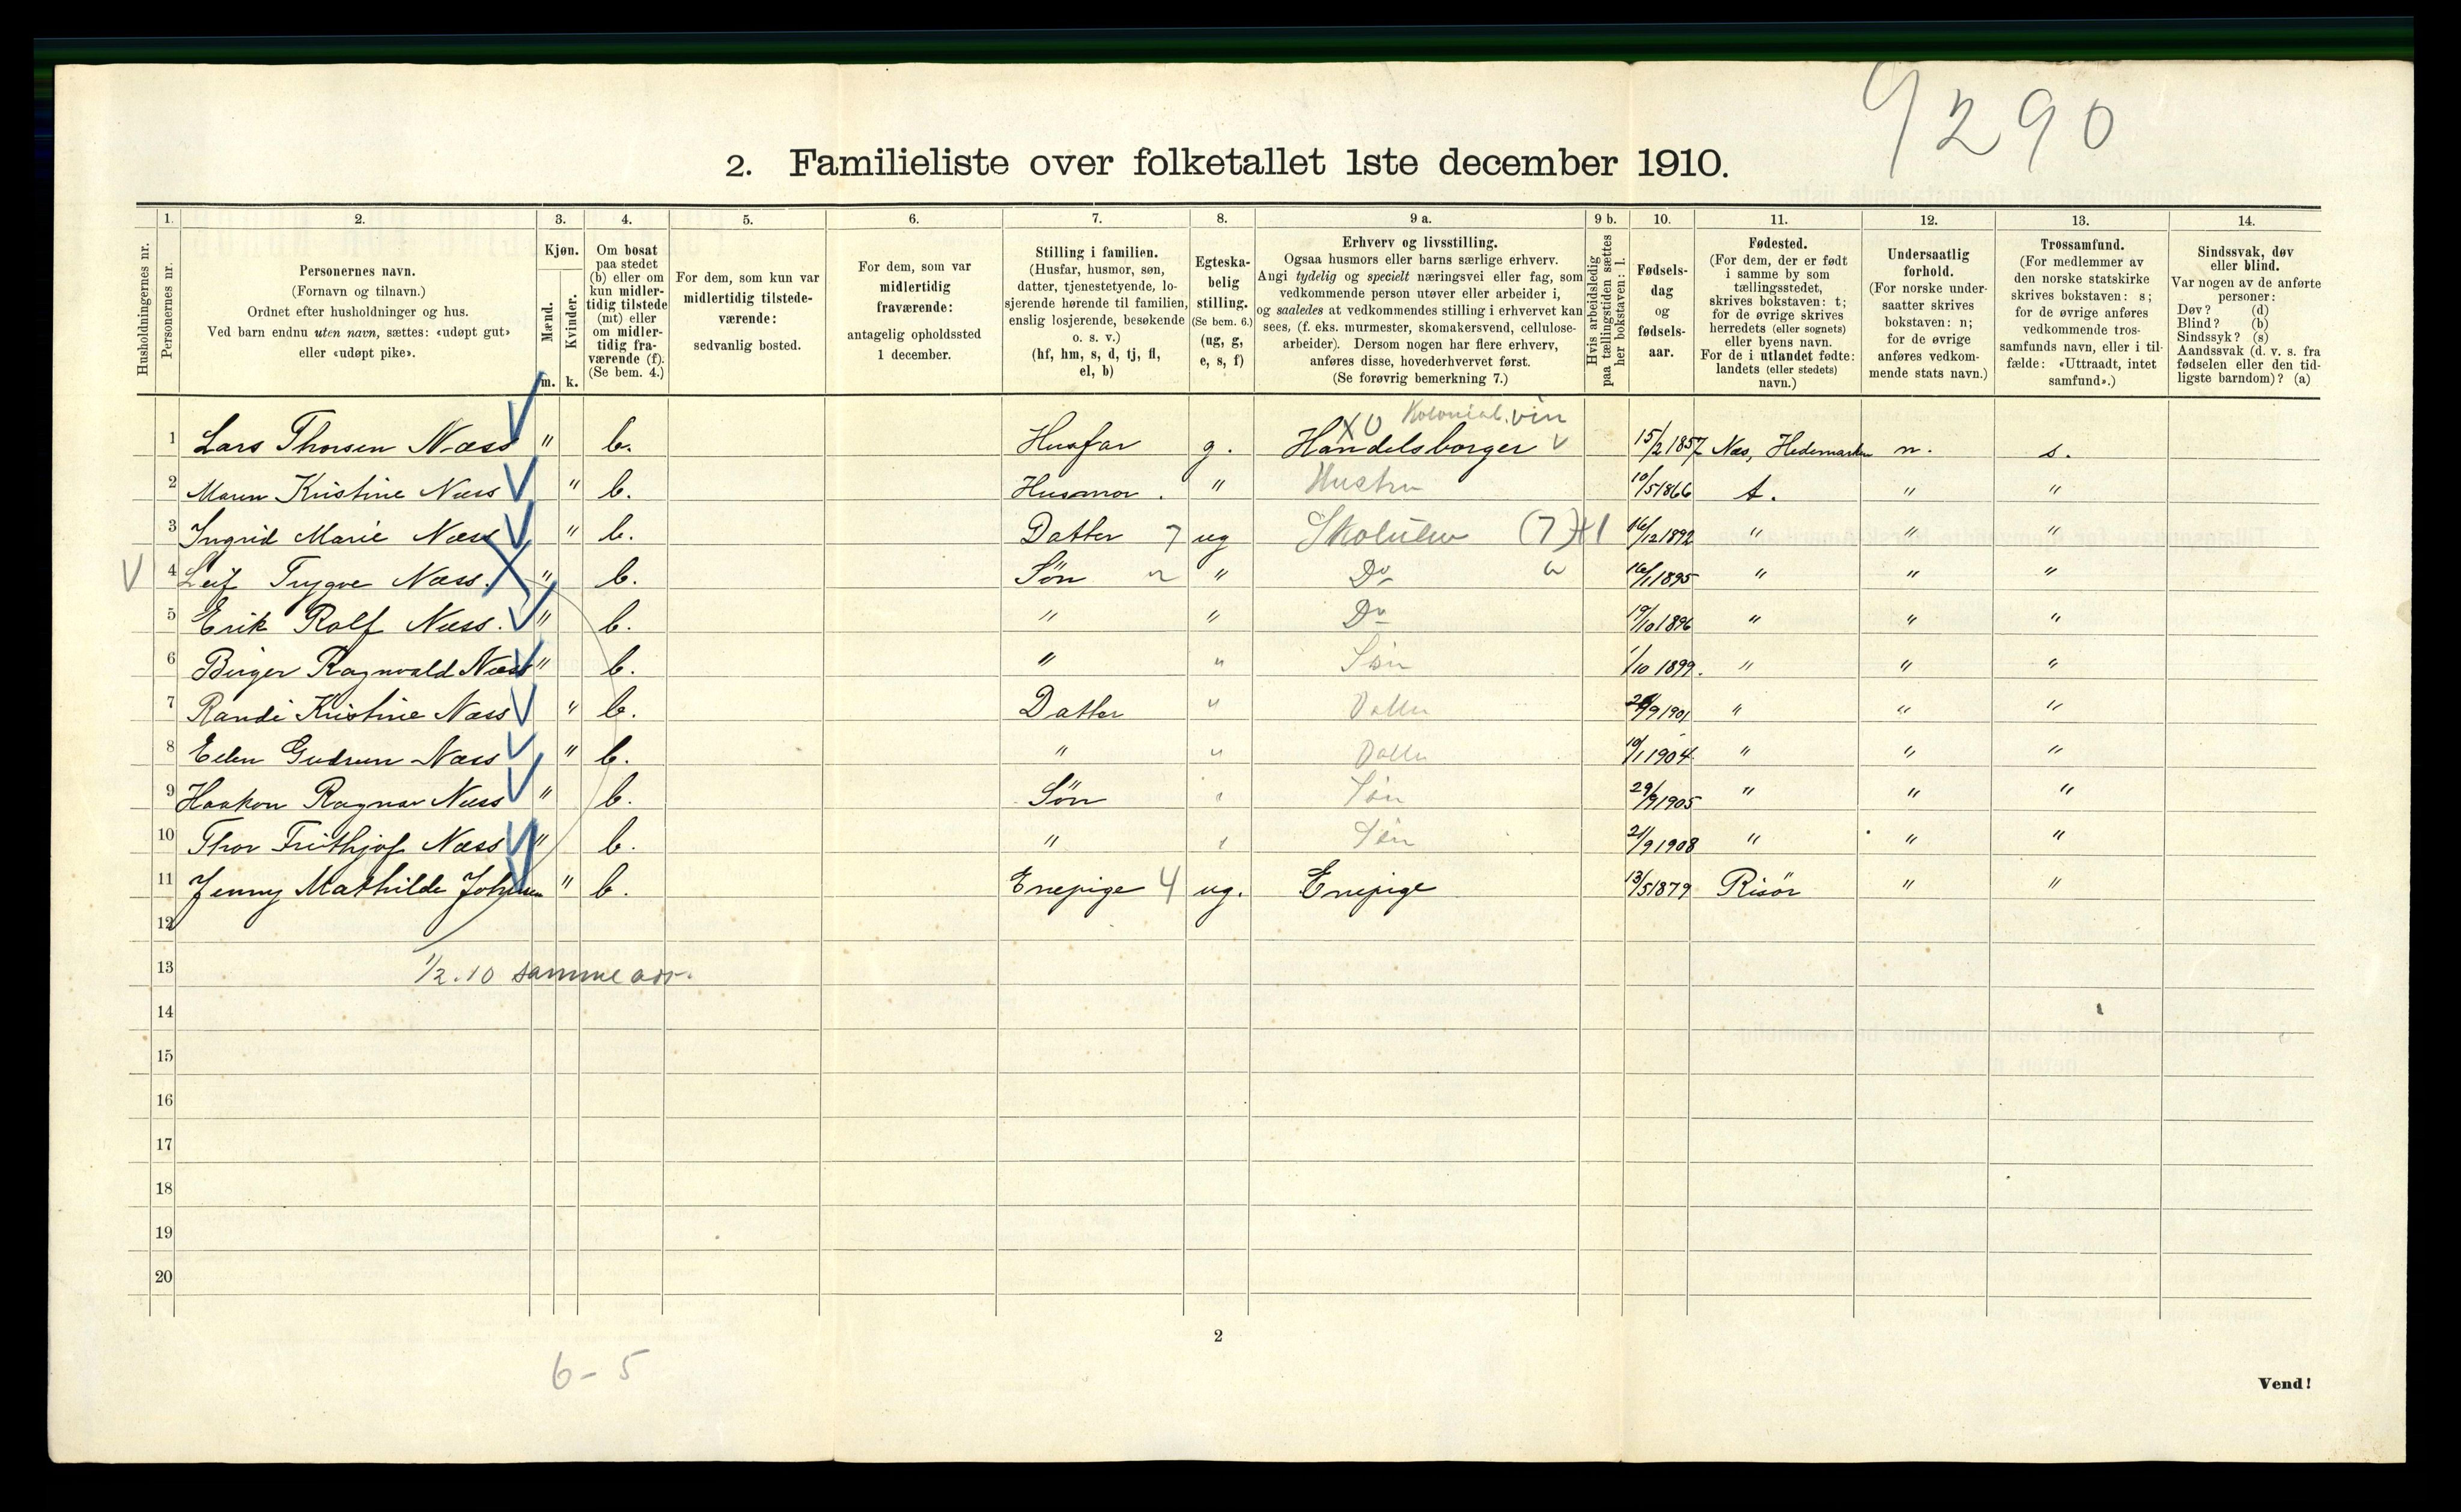 9290
2. Familieliste over folketallet 1ste december 1910.
1. 2. 3. 4. 5. 6. 7. 8. 9 a. 9 b. 10. 11. 12. 13. 14.
Husholdningernes nr.
Personernes nr.
Personernes navn.
(Fornavn og tilnavn.)
Ordnet efter husholdninger og hus.
Ved barn endnu uten navn, sættes: «udøpt gut»
eller «udøpt pike».
Kjøn.
Mænd.
Kvinder.
m. k.
Om bosat
paa stedet
(b) eller om
kun midler-
tidig tilstede
(mt) eller
om midler-
tidig fra-
værende (f).
(Se bem. 4.)
For dem, som kun var
midlertidig tilstede-
værende:
sedvanlig bosted.
For dem, som var
midlertidig
fraværende:
antagelig opholdssted
1 december.
Stilling i familien.
(Husfar, husmor, søn,
datter, tjenestetyende, lo-
sjerende hørende til familien,
enslig losjerende, besøkende
o. s. v.)
(hf, hm, s, d, tj, fl,
el, b)
Egteska-
belig
stilling.
(Se bem. 6.)
(ug, g,
e, s, f)
Erhverv og livsstilling.
Ogsaa husmors eller barns særlige erhverv.
Angi tydelig og specielt næringsvei eller fag, som
vedkommende person utøver eller arbeider i,
og saaledes at vedkommendes stilling i erhvervet kan
sees, (f. eks. murmester, skomakersvend, cellulose-
arbeider). Dersom nogen har flere erhverv,
anføres disse, hovederhvervet først.
(Se forøvrig bemerkning 7.)
Hvis arbeidsledig
paa tællingstiden sættes
her bokstaven: l.
Fødsels-
dag
og
fødsels-
aar.
Fødested.
(For dem, der er født
i samme by som
tællingsstedet,
skrives bokstaven: t;
for de øvrige skrives
herredets (eller sognets)
eller byens navn.
For de i utlandet fødte:
landets (eller stedets)
navn.)
Undersaatlig
forhold.
(For norske under-
saatter skrives
bokstaven: n;
for de øvrige
anføres vedkom-
mende stats navn.)
Trossamfund.
(For medlemmer av
den norske statskirke
skrives bokstaven: s;
for de øvrige anføres
vedkommende tros-
samfunds navn, eller i til-
fælde: «Uttraadt, intet
samfund».)
Sindssvak, døv
eller blind.
Var nogen av de anførte
personer:
Døv? (d)
Blind? (b)
Sindssyk? (s)
Aandssvak (d. v. s. fra
fødselen eller den tid-
ligste barndom)? (a)
Kolonial. vin
1 Lars Thorsen Næss " b. Husfar g. Handelsborger 15/2 1857 Næs, Hedemarken n. s.
2 Maren Kristine Næss " b. Husmor. " Hustru 10/5 1866 t. " "
3 Ingrid Marie Næss " b. Datter 7 ug Skoleelev (7) 16/12 1892 " " "
4 Leif Trygve Næss. " b. Søn " Do 16/1 1895 " " "
5 Erik Rolf Næss. " b. " " Do 19/10 1896 " " "
6 Birger Ragnvald Næss " b. " " Søn 1/10 1899. " " "
7 Randi Kristine Næss " b. Datter " Datter /9 1901 " " "
8 Ellen Gudrun Næss " b. " " Datter 10/1 1904 " " "
9 Haakon Ragnar Næss " b. Søn " Søn 29/9 1905 " " "
10 Thor Frithjof Næss " b. " " Søn 21/9 1908 " " "
11 Jenny Mathilde Johnsen " b. Enepige 4 ug. Enepige 13/5 1879 Risör " "
12
13 1/2.10 samme adr.
14
15
16
17
18
19
20
2
6-5
Vend!